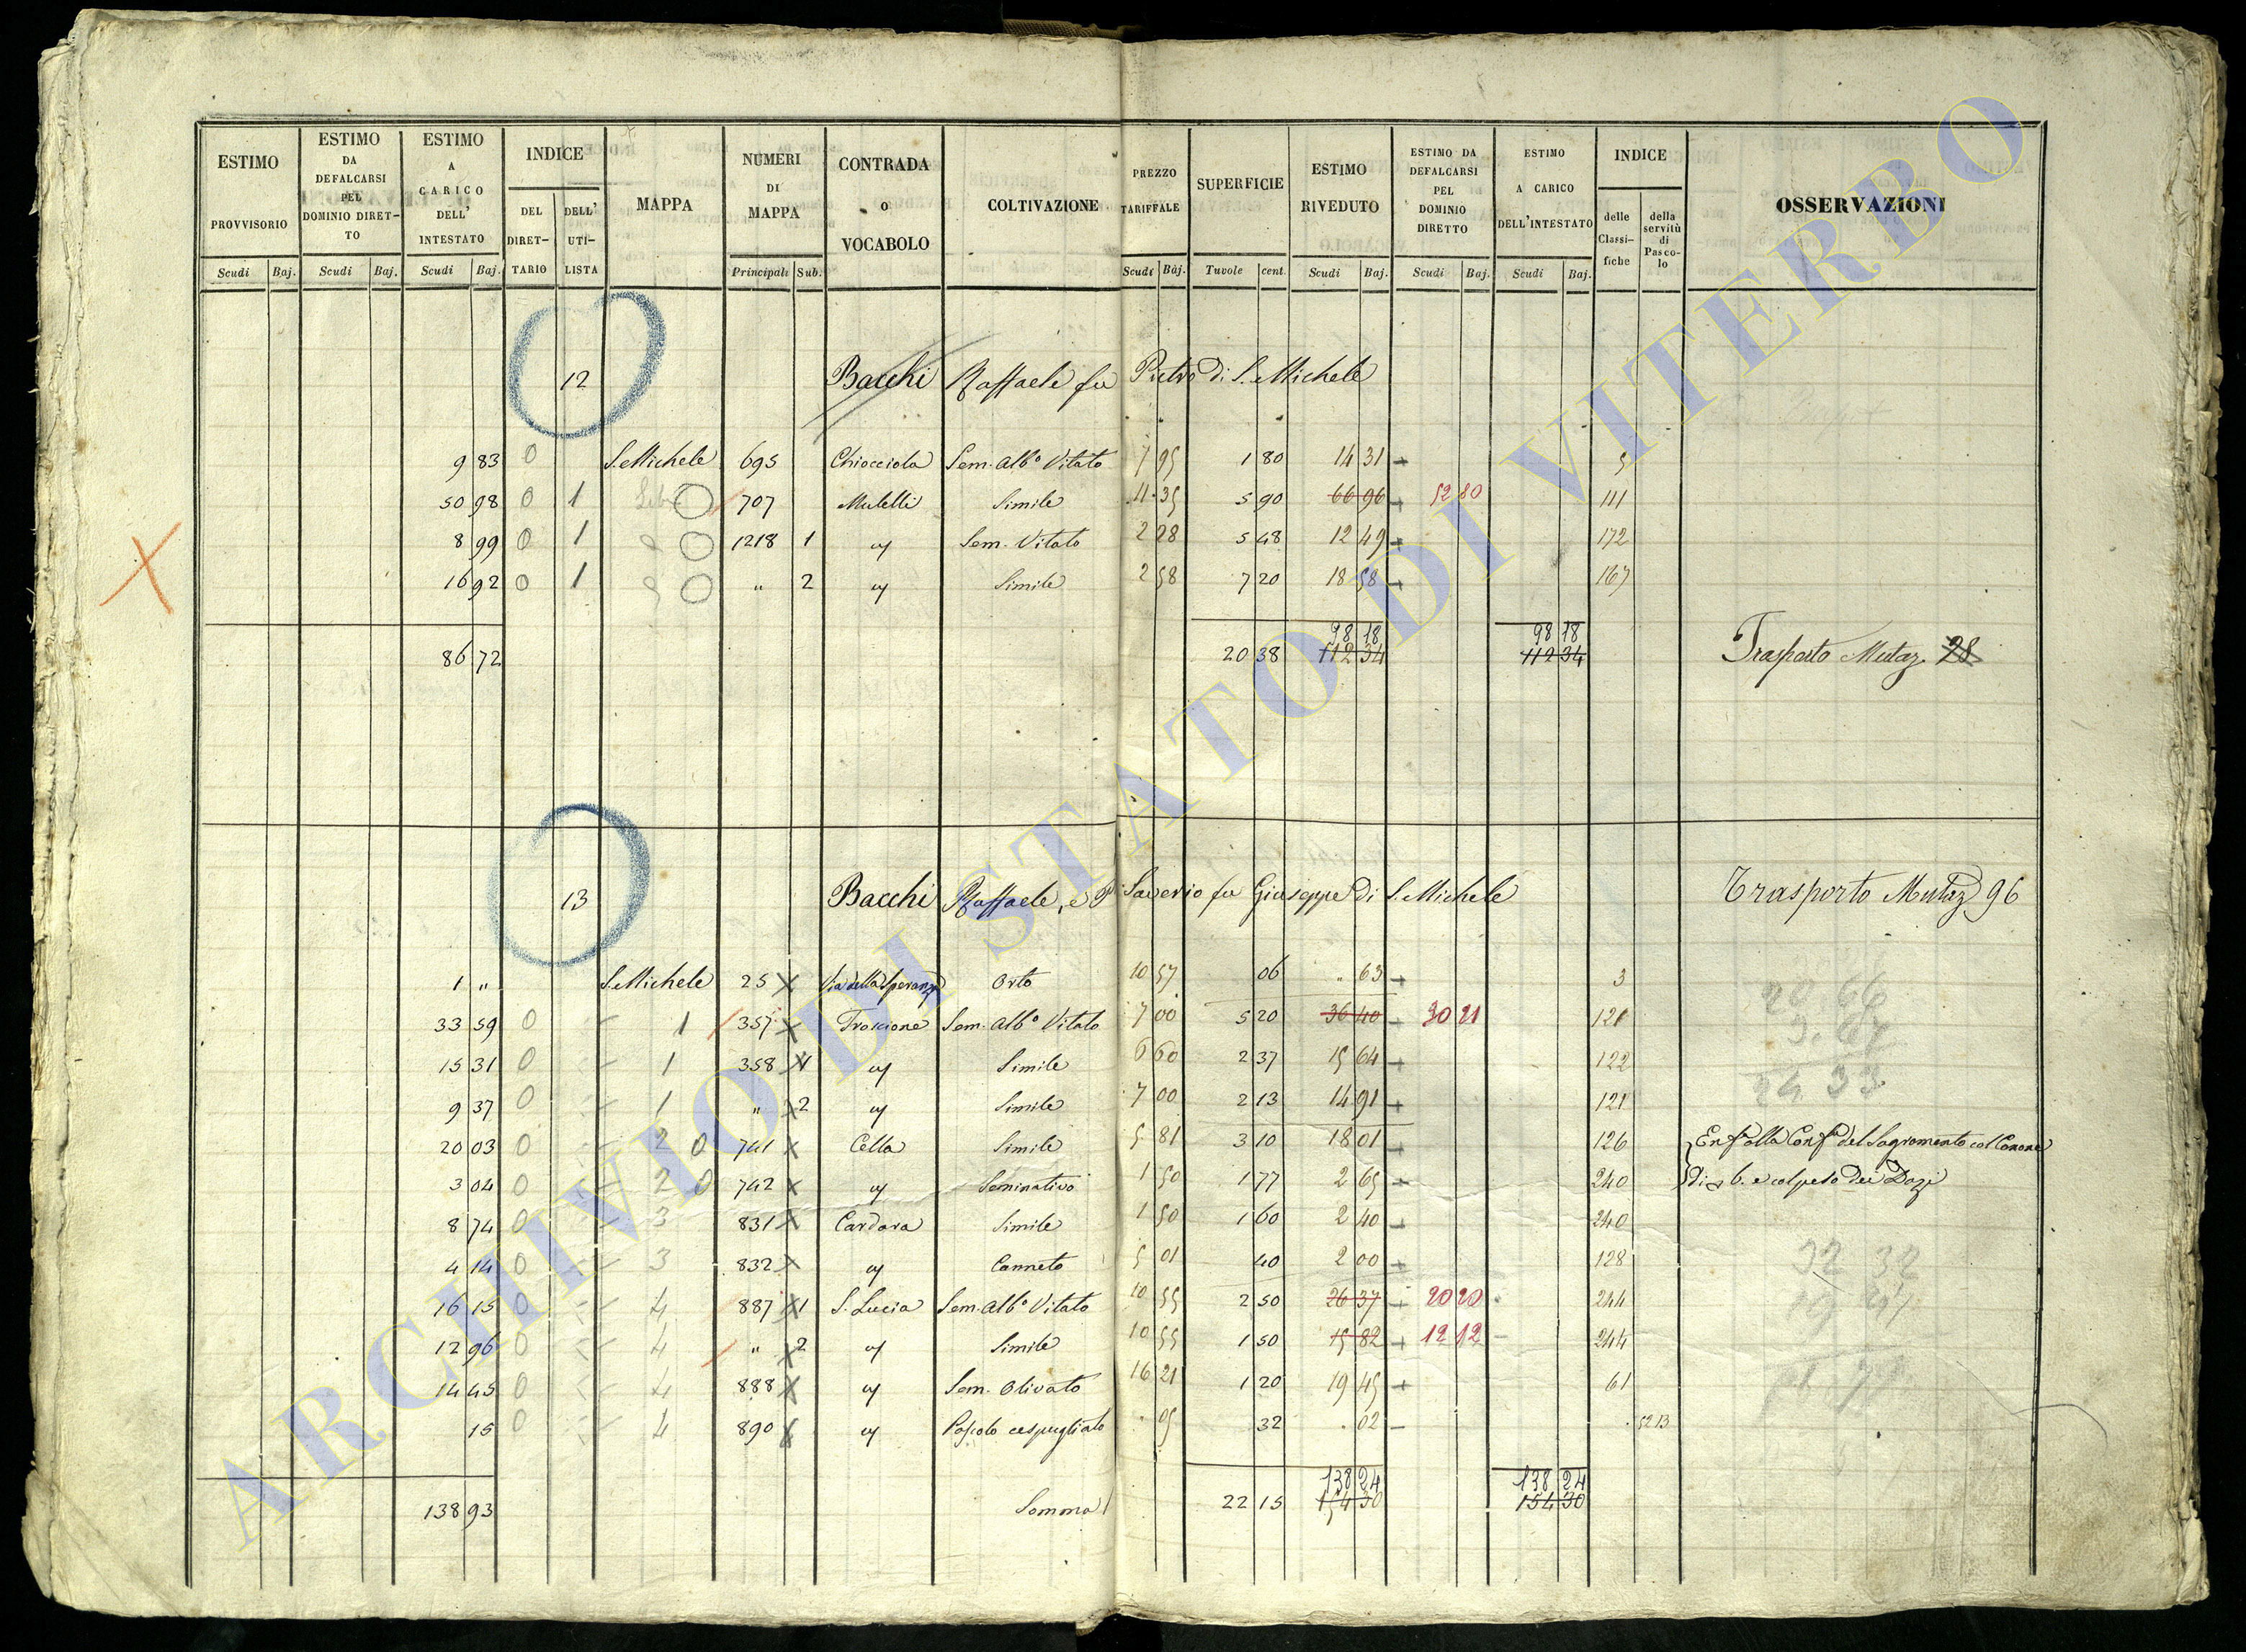 ESTIMO PROVVISORIO Scudi Baj.
ESTIMO DA DEFALCARSI PEL DOMINIO DIRET-TO Scudi Baj.
ESTIMO A CARICO DELL' INTESTATO Scudi Baj.
INDICE DEL DIRET-TARIO DELL' UTI-LISTA
MAPPA
NUMERI DI MAPPA Principali Sub.
CONTRADA o VOCABOLO
COLTIVAZIONE
PREZZO TARIFFALE Scudi Baj.
SUPERFICIE Tavole cent.
ESTIMO RIVEDUTO Scudi Baj.
ESTIMO DA DEFALCARSI PEL DOMINIO DIRETTO Scudi Baj.
ESTIMO A CARICO DELL'INTESTATO Scudi Baj.
INDICE delle Classi-fiche della servitù di Pasco-lo
OSSERVAZIONI
12 Bacchi Raffaele fu Pietro di S. Michele
9 83 0 S. Michele 695 Chiocciola Sem. Alb.o Vitato 7 95 1 80 14 31 5
50 98 0 1 707 Mulelli Simile 11 35 5 90 66 96 52 80 111
8 99 0 1 1218 1 " Sem. Vitato 2 28 5 48 12 49 172
16 92 0 1 " 2 " Simile 2 58 7 20 18 58 167
98 18 98 18
86 72 20 38 112 34 112 34 Trasporto Mutaz. 28
13 Bacchi Raffaele, e Saverio fu Giuseppe di S. Michele Trasporto Mutaz 96
1 " S. Michele 25 Via della Speranza Orto 10 57 06 " 63 3
33 59 0 1 357 Troscione Sem. Alb.o Vitato 7 00 5 20 36 40 30 21 121
15 31 0 1 358 1 " Simile 6 60 2 37 15 64 122
9 37 0 1 " 2 " Simile 7 00 2 13 14 91 121
20 03 0 2 0 741 Cella Simile 5 81 3 10 18 01 126 Enf. alla Conf. del Sagramento col Canone
3 04 0 2 0 742 " Seminativo 1 50 1 77 2 65 240 di b. e col peso dei Dazi
8 74 0 3 831 Cardara Simile 1 50 1 60 2 40 240
4 14 0 3 832 " Canneto 5 01 40 2 00 128
16 15 0 4 887 1 S. Lucia Sem. Alb.o Vitato 10 55 2 50 26 37 20 20 244
12 96 0 4 " 2 " Simile 10 55 1 50 15 82 12 12 244
14 45 0 4 888 " Sem. Olivato 16 21 1 20 19 45 61
15 0 4 890 " Pascolo cespugliato . 05 32 . 02 5213
138 24 138 24
138 93 Somma 22 15 154 30 154 30
ARCHIVIO DI STATO DI VITERBO